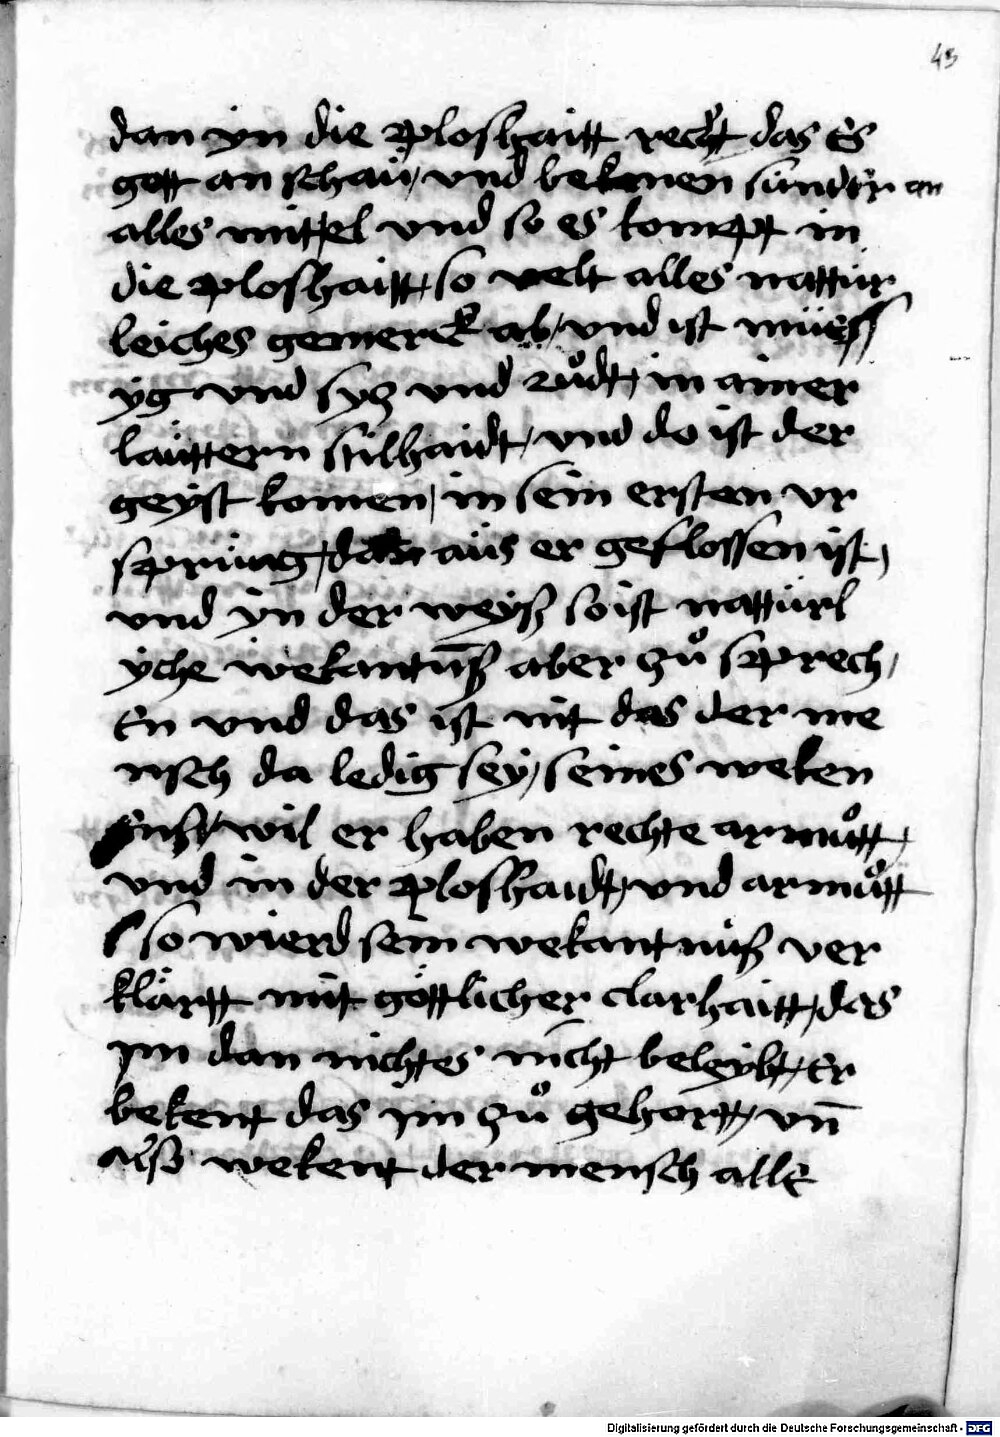 43
dan yn die ploshaitt recht das Es
gott an schaü, vnd bekenen sünder an
alles mittel vnd so es kompt in
die ploshaitt, so velt alles nattür
leiches gemerck ab, vnd ist müess
yg vnd sÿz vnd růdt, in ainer
laüttern stilhaidt, vnd do ist der
geÿst komen, in sein ersten vr
sprüng, dar aüs er geflossen ist,
vnd ÿn der weÿß so ist nattürl
ÿche wekantnüß aber zů sprech,
En vnd das ist nit das der me
nsch da ledig seÿ, seines weken
wil er haben rechte armůtt,
vnd in der ploshaidt, vnd armůtt
so wierd sein wekantnüß ver
klärtt mit göttlicher clarhaitt, das
im dan nichtes nicht beleÿbt, Er
bekent das im zů gehortt, vn̄
also wekent der mensch alle
Digitalisierung gefördert durch die Deutsche Forschungsgemeinschaft - DFG